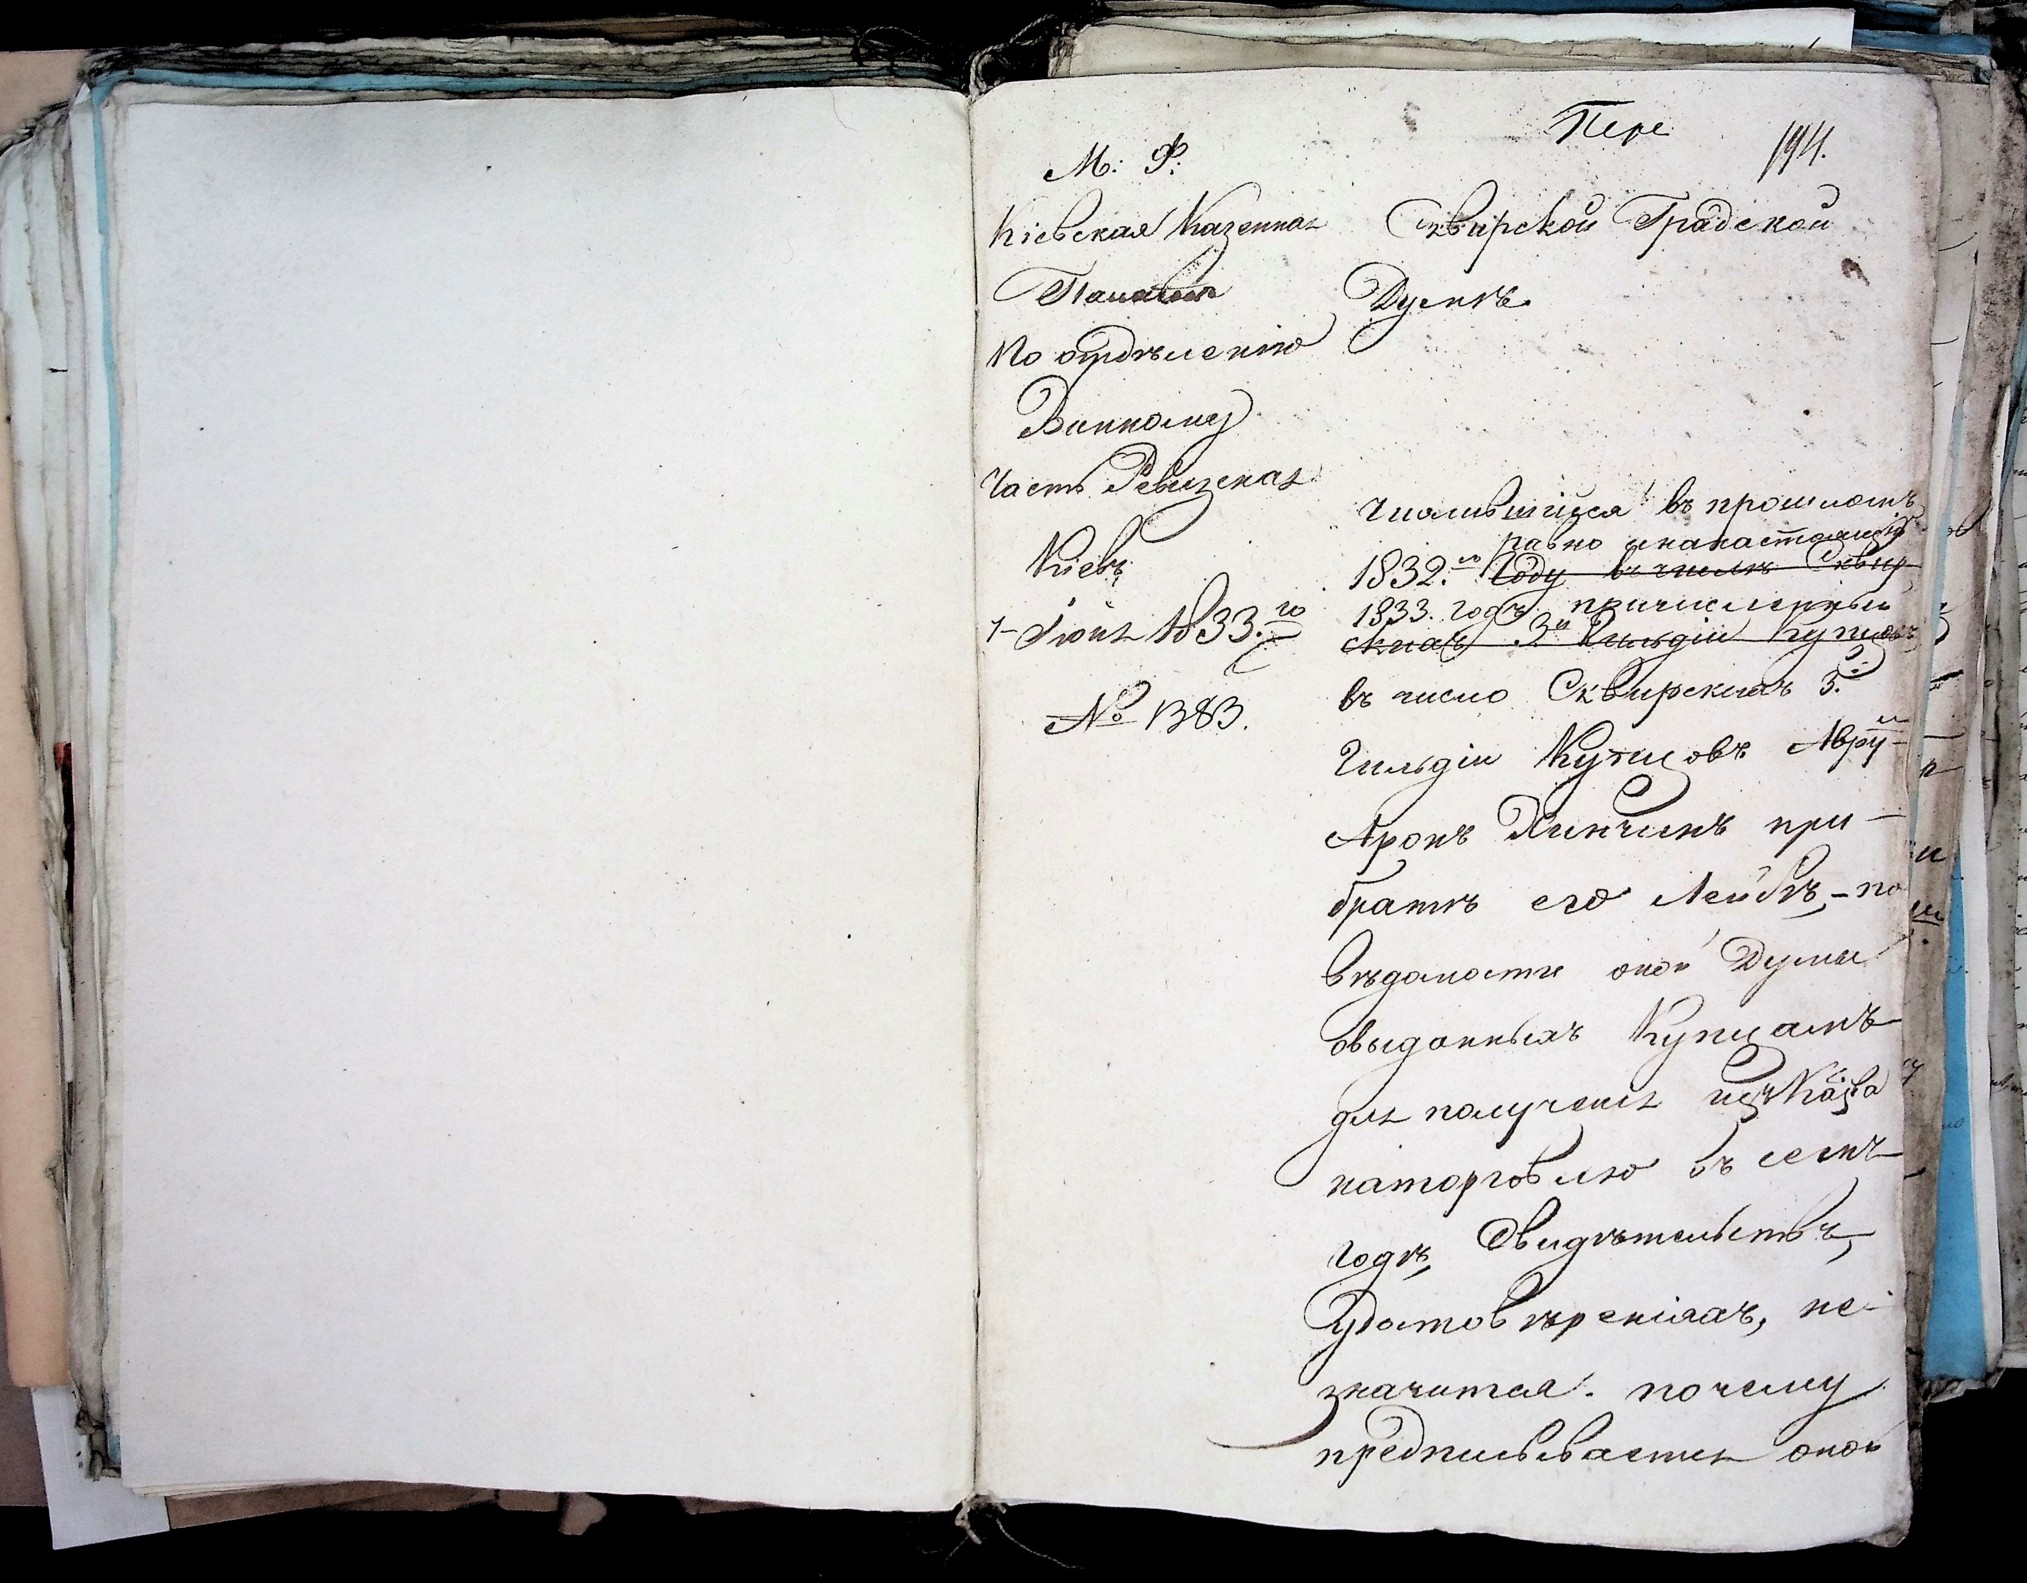 Пере
194.
М: Ф:
Кіевская Казенная
Палата
По отдѣленію
Винному
Часть Ревизская
Кіевъ
7 Іюня 1833.го
№ 1383.
Сквирской Градской
Думѣ.
Числившійся въ прошломъ
равно и на настоящій
1832.мъ Году въ числѣ Сквир-
1833. годъ причисленный
скихъ 3й Гильдіи Купцовъ
въ число Сквирскихъ 3.й
Гильдіи Купцовъ
Аронъ Хинчинъ при
братѣ его Лейбѣ, по
вѣдомости оной Думы
о выданныхъ Купцамъ
для полученія изъ Каз-ва
на торговлю въ семъ
годѣ, Свидѣтельствъ,
Удостовѣреніяхъ, не
значится. почему
предписывается оной